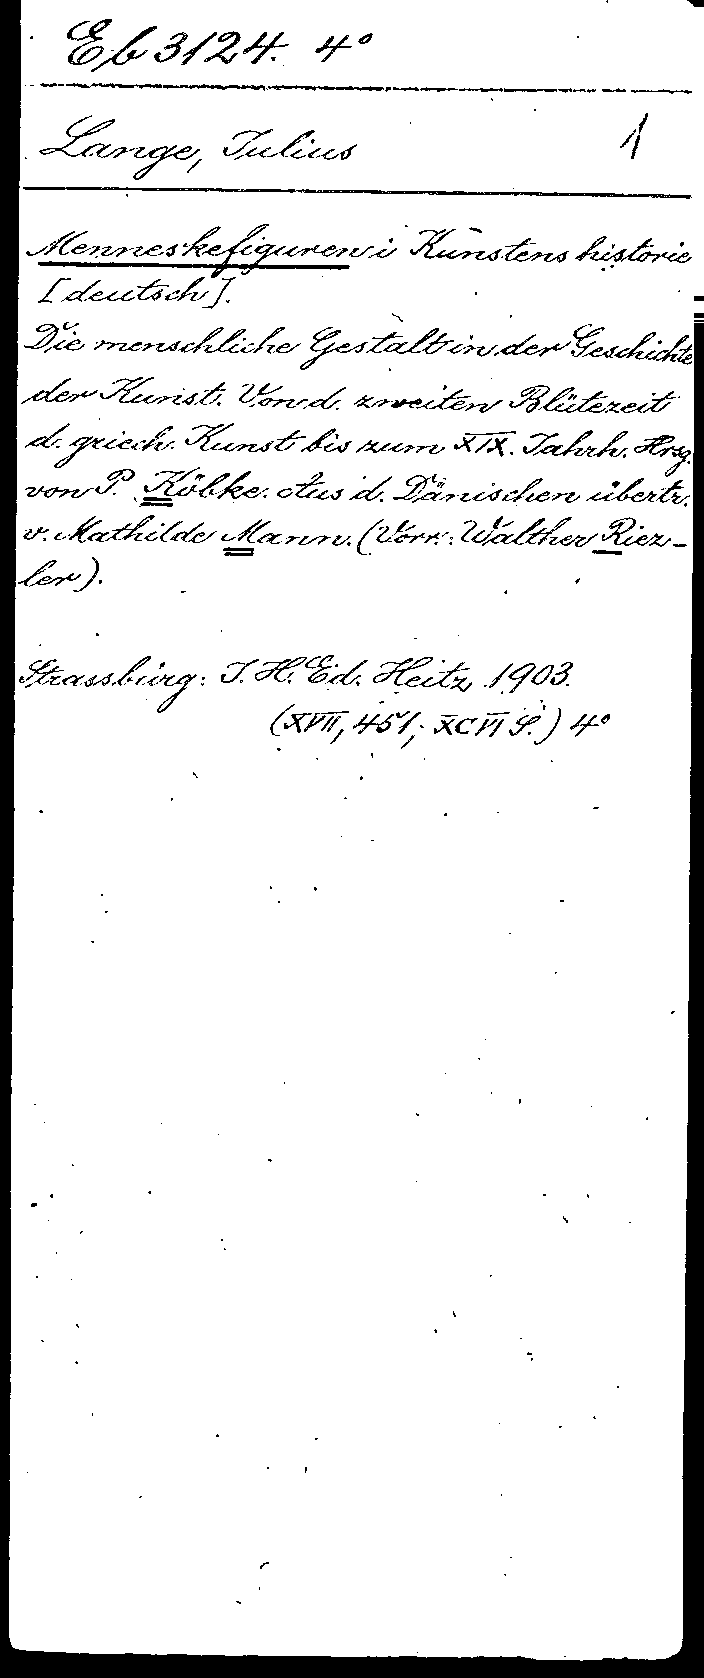 Eb 3124. 4°
Lange, Julius 1
Menneskefiguren i Kunstens historie
[deutsch].
Die menschliche Gestalt in der Geschichte
der Kunst. Von d. zweiten Blütezeit
d. griech. Kunst bis zum XIX. Jahrh. Hrsg.
von P. Köbke. Aus d. Dänischen übertr.
v. Mathilde Mann. (Vorr.: Walther Riez-
ler).
Strassburg: J. H. Ed. Heitz 1903.
(XVII, 451; XCVI S.) 4°